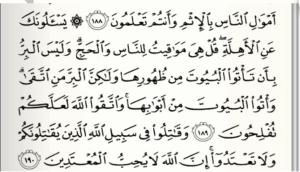 أَمْوَٰلِ ٱلنَّاسِ بِٱلْإِثْمِ وَأَنتُمْ تَعْلَمُونَ ١٨٨ ۞ يَسْـَٔلُونَكَ
عَنِ ٱلْأَهِلَّةِ ۖ قُلْ هِىَ مَوَٰقِيتُ لِلنَّاسِ وَٱلْحَجِّ ۗ وَلَيْسَ ٱلْبِرُّ
بِأَن تَأْتُوا۟ ٱلْبُيُوتَ مِن ظُهُورِهَا وَلَـٰكِنَّ ٱلْبِرَّ مَنِ ٱتَّقَىٰ ۗ
وَأْتُوا۟ ٱلْبُيُوتَ مِنْ أَبْوَٰبِهَا ۚ وَٱتَّقُوا۟ ٱللَّهَ لَعَلَّكُمْ
تُفْلِحُونَ ١٨٩ وَقَـٰتِلُوا۟ فِى سَبِيلِ ٱللَّهِ ٱلَّذِينَ يُقَـٰتِلُونَكُمْ
وَلَا تَعْتَدُوٓا۟ ۚ إِنَّ ٱللَّهَ لَا يُحِبُّ ٱلْمُعْتَدِينَ ١٩٠